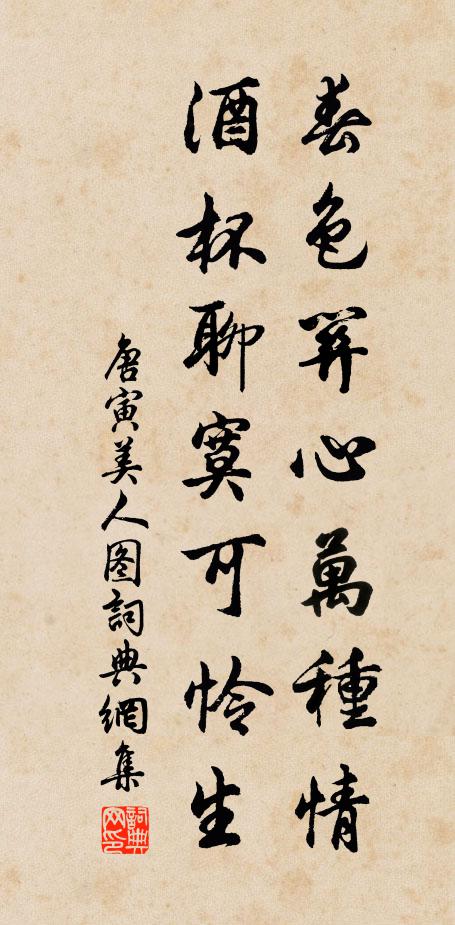 春色關心萬種情
酒杯聊寞可怜生
唐寅美人图詞典網集
詞典网印